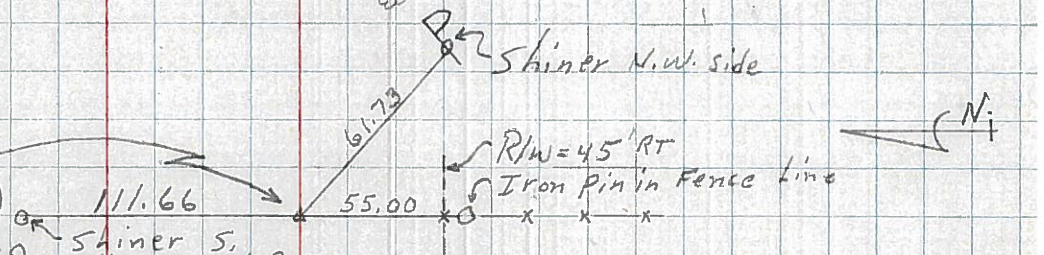 Shiner N.W. side
61.73
N
R/W = 45' RT
Iron Pin in Fence Line
111.66
55.00
Shiner S.